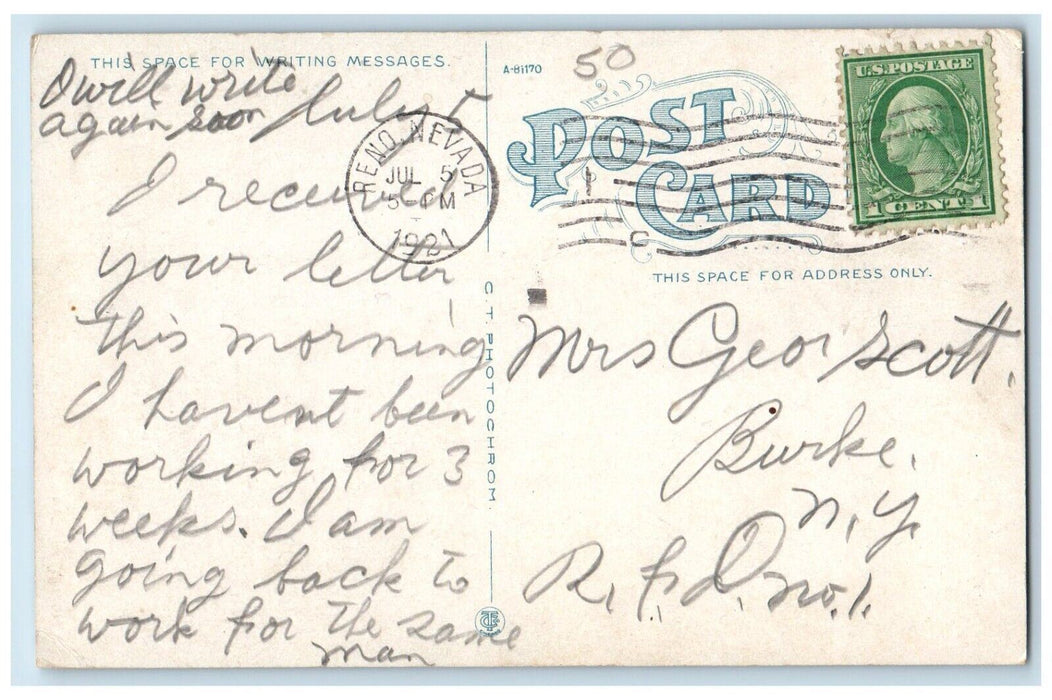 THIS SPACE FOR WRITING MESSAGES.
I will write
again soon
July 5
I received
your letter
this morning
I havent been
working for 3
weeks. I am
going back to
work for the same
man
RENO, NEVADA
JUL 5
5 PM
1921
C. T. PHOTOCHROM.
CT
A-81170
50
POST
CARD
THIS SPACE FOR ADDRESS ONLY.
U.S. POSTAGE
1 CENT 1
Mrs Geo Scott.
Burke.
N.Y.
R.F.D. No. 1.